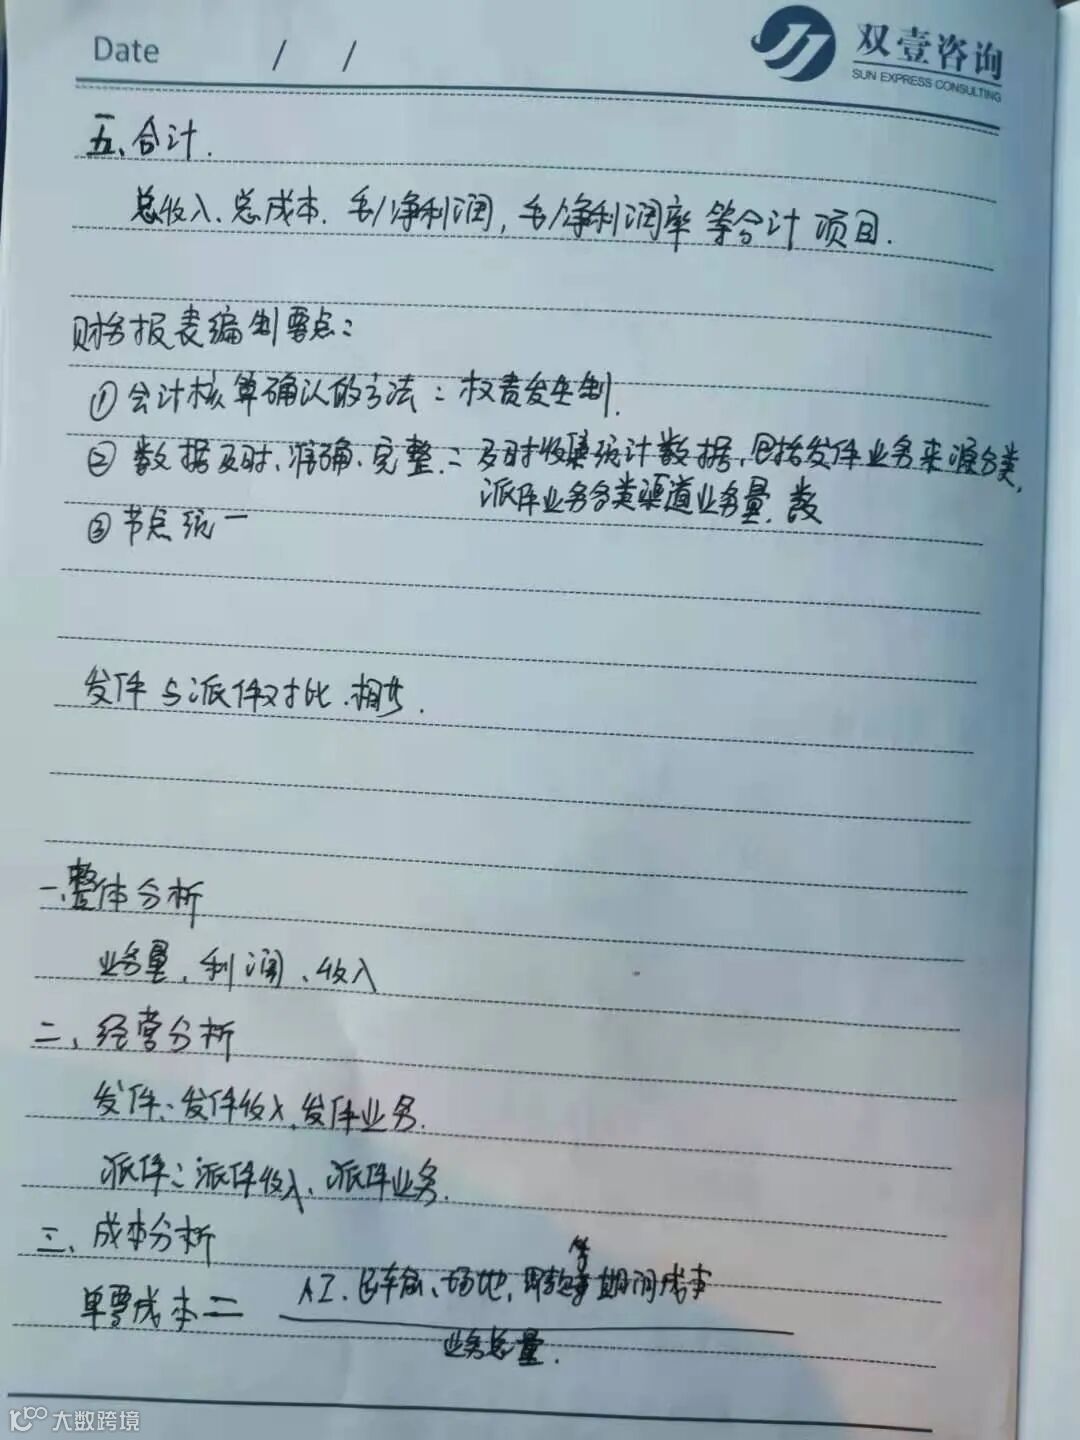 Date / /
双壹咨询
SUN EXPRESS CONSULTING
五、合计.
总收入、总成本、毛/净利润,毛/净利润率 等合计 项目.
财务报表编制要点:
① 会计核算确认的方法:权责发生制.
② 数据及时、准确、完整:及时收集统计数据,包括发件业务来源分类,
派件业务各类渠道业务量,
③ 节点统一
发件与派件对比.
一.整体分析
业务量、利润、收入
二、经营分析
发件:发件收入,发件业务.
派件:派件收入、派件业务.
三、成本分析
等
单票成本= 人工、 场地, 期间成本
业务总量.
大数跨境